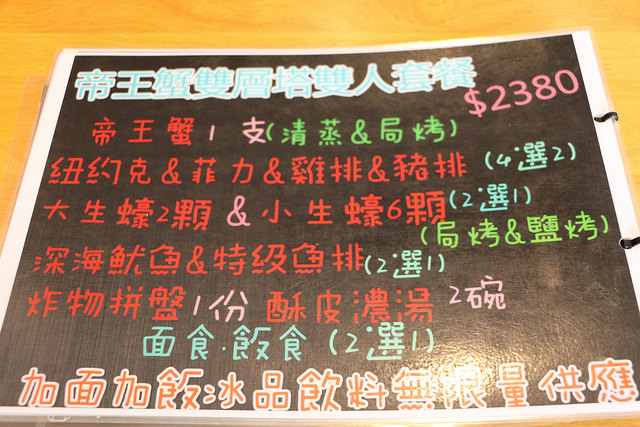 帝王蟹雙層塔雙人套餐
$2380
帝王蟹1支(清蒸&局烤)
紐約克&菲力&雞排&豬排(4選2)
大生蠔2顆&小生蠔6顆(2選1)
(局烤&鹽烤)
深海魷魚&特級魚排(2選1)
炸物拼盤1份 酥皮濃湯2碗
面食·飯食(2選1)
加面加飯冰品飲料無限量供應